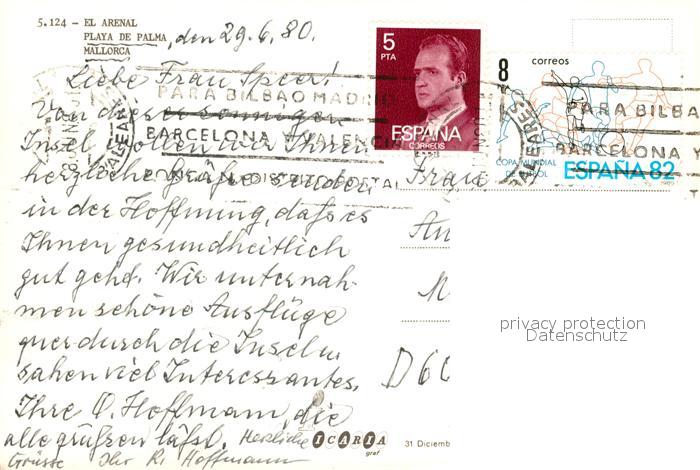 5.124 - EL ARENAL
PLAYA DE PALMA, den 29.6.80.
MALLORCA
Liebe Frau Speer!
Von dieser sonnigen
Insel wollen wir Ihnen
herzliche Grüße senden,
in der Hoffnung, daß es
Ihnen gesundheitlich
gut geht. Wir unternah-
men schöne Ausflüge
quer durch die Insel u.
sahen viel Interessantes.
Ihre O. Hoffmann, die
alle grüßen läßt. Herzliche
Grüsse Ihr R. Hoffmann
ICARIA
graf
31 Diciemb
5
PTA
ESPAÑA
CORREOS
8
correos
COPA MUNDIAL
DE FUTBOL
ESPAÑA 82
PARA BILBAO MADRID
BARCELONA VALENCIA
PONGA N.º DISTRITO POSTAL
PARA BILBA
BARCELONA Y
Frau
D 60
privacy protection
Datenschutz